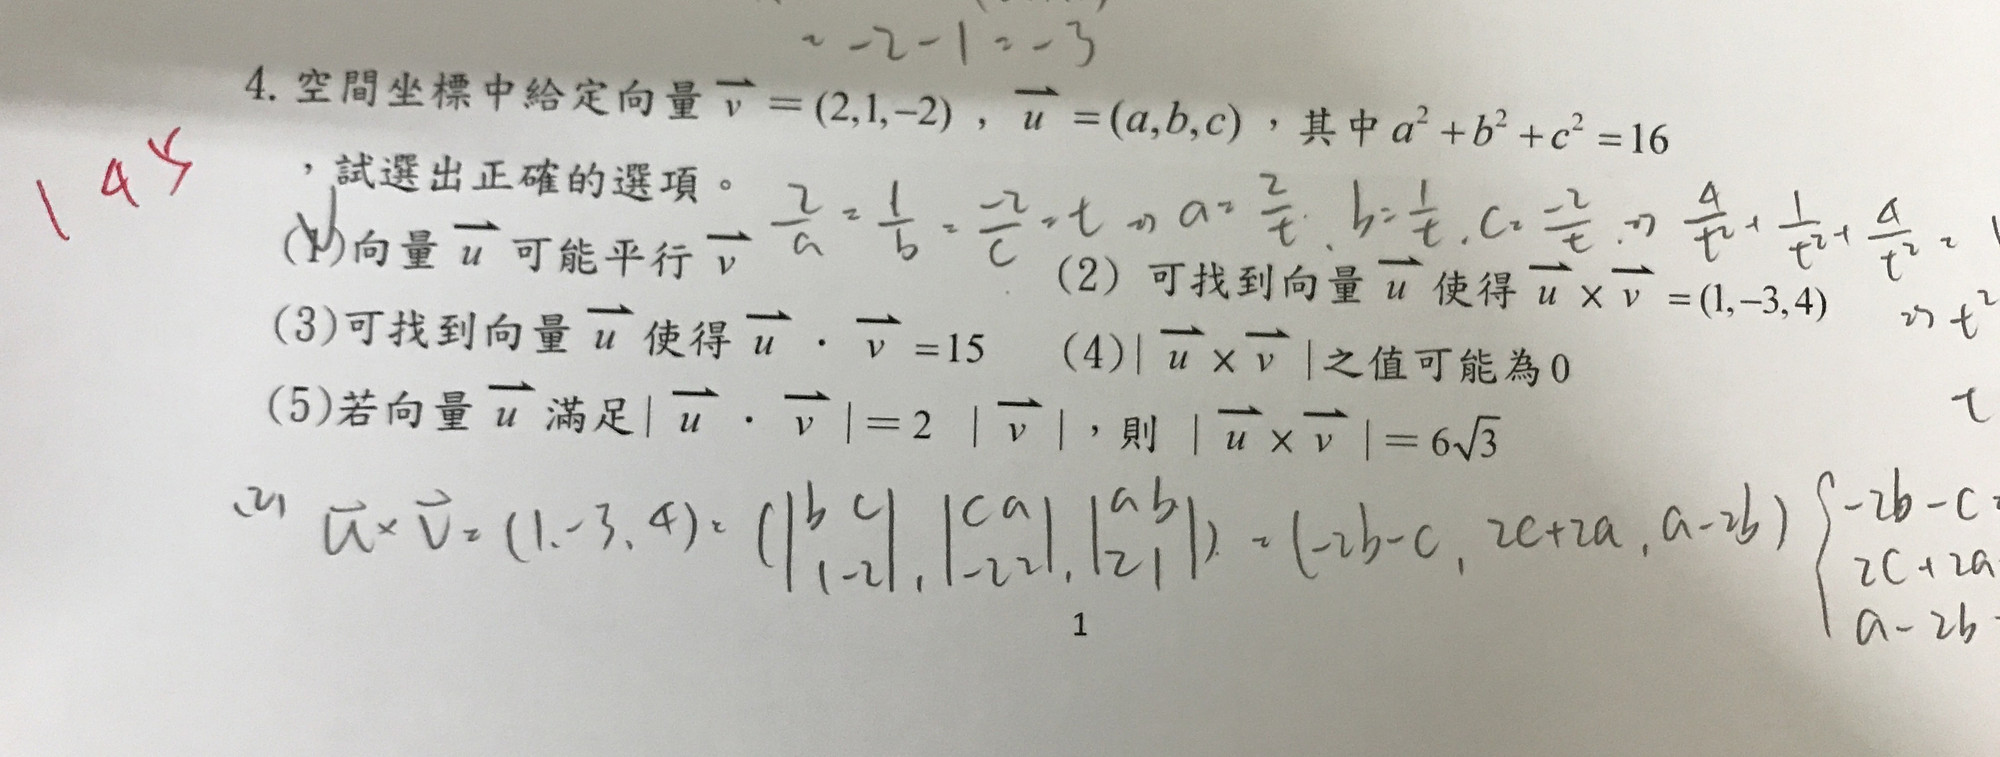 = -2-1 = -3
4. 空間坐標中給定向量 v⃗ = (2,1,−2) , u⃗ = (a,b,c) ,其中 a² + b² + c² = 16
,試選出正確的選項。
1 4 5
2/a = 1/b = -2/c = t ⇒ a = 2/t, b = 1/t, c = -2/t ⇒ 4/t² + 1/t² + 4/t² = 1
(1)向量 u⃗ 可能平行 v⃗
(2) 可找到向量 u⃗ 使得 u⃗ × v⃗ = (1,−3,4)
⇒ t²
(3)可找到向量 u⃗ 使得 u⃗ · v⃗ = 15
(4)| u⃗ × v⃗ |之值可能為0
t
(5)若向量 u⃗ 滿足| u⃗ · v⃗ |= 2 | v⃗ |,則 | u⃗ × v⃗ |= 6√3
(2) u⃗ × v⃗ = (1, -3, 4) = (|b c; 1 -2|, |c a; -2 2|, |a b; 2 1|) = (-2b-c, 2c+2a, a-2b) { -2b-c =
2c+2a
a-2b
1